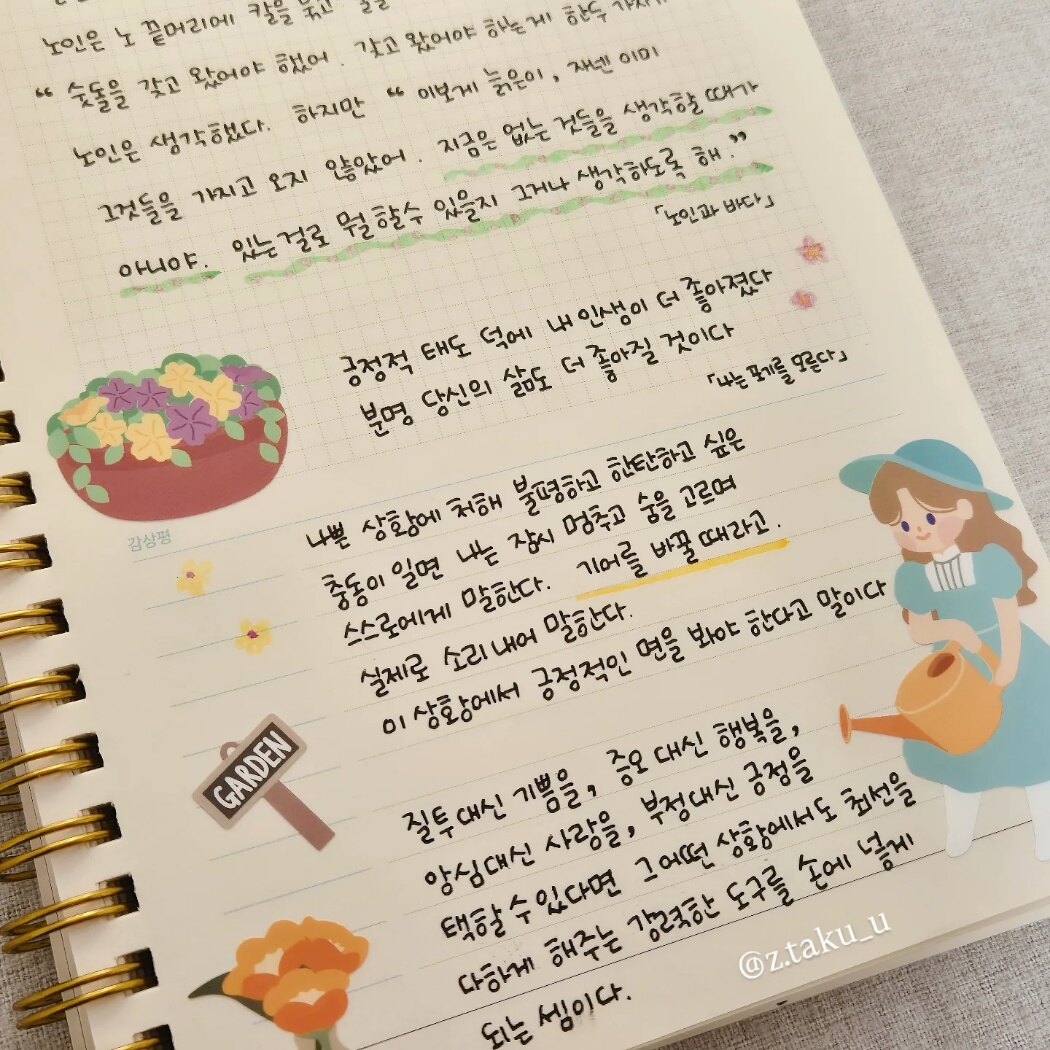 노인은 노 끝머리에 칼을 묶고
“ 숫돌을 갖고 왔어야 했어. 갖고 왔어야 하는게 한두 가지가
노인은 생각했다. 하지만 “ 이보게 늙은이, 자넨 이미
그것들을 가지고 오지 않았어. 지금은 없는 것들을 생각할 때가
아니야. 있는걸로 뭘 할수 있을지 그거나 생각하도록 해.”
「노인과 바다」
긍정적 태도 덕에 내 인생이 더 좋아졌다
분명 당신의 삶도 더 좋아질 것이다
「나는 포기를 모른다」
감상평
나쁜 상황에 처해 불평하고 한탄하고 싶은
충동이 일면 나는 잠시 멈추고 숨을 고르며
스스로에게 말한다. 기어를 바꿀 때라고.
실제로 소리내어 말한다.
이 상황에서 긍정적인 면을 봐야 한다고 말이다
GARDEN
질투대신 기쁨을, 증오 대신 행복을,
앙심대신 사랑을, 부정대신 긍정을
택할 수 있다면 그 어떤 상황에서도 최선을
다하게 해주는 강력한 도구를 손에 넣게
되는 셈이다.
@z.taku_u